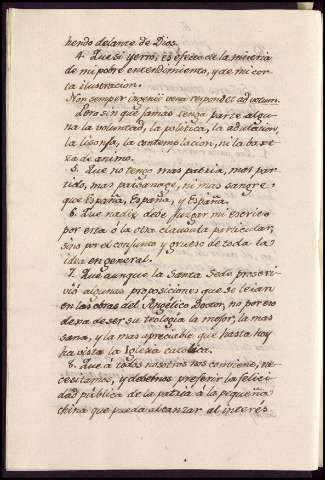 hendo delante de Dios.
4. Que si yerro, es efecto de la miseria
de mi pobre entendimiento, y de mi cor
ta ilustracion.
Non semper ingenii vena respondet ad votum.
Pero sin que jamas tenga parte algu
na la voluntad, la politica, la adulacion,
la lisonja, la contemplacion, ni la baxe
za de animo.
5. Que no tengo mas patria, mas par
tido, mas paisanage, ni mas sangre,
que España, España, y España.
6. Que nadie debe juzgar mi escrito
por esta ó la otra clausula particular,
sino por el conjunto y grueso de toda la
idea en general.
7. Que aunque la Santa Sede proscri
vió algunas proposiciones que se leian
en las obras del Angélico Doctor, no por eso
dexa de ser su teologia la mejor, la mas
sana, y la mas apreciable que hasta hoy
ha visto la Iglesia catolica.
8. Que á todos nosotros nos conviene, ne
cesitamos, y debemos preferir la felici
dad pública de la patria á la pequeña
china que pueda alcanzar al interés